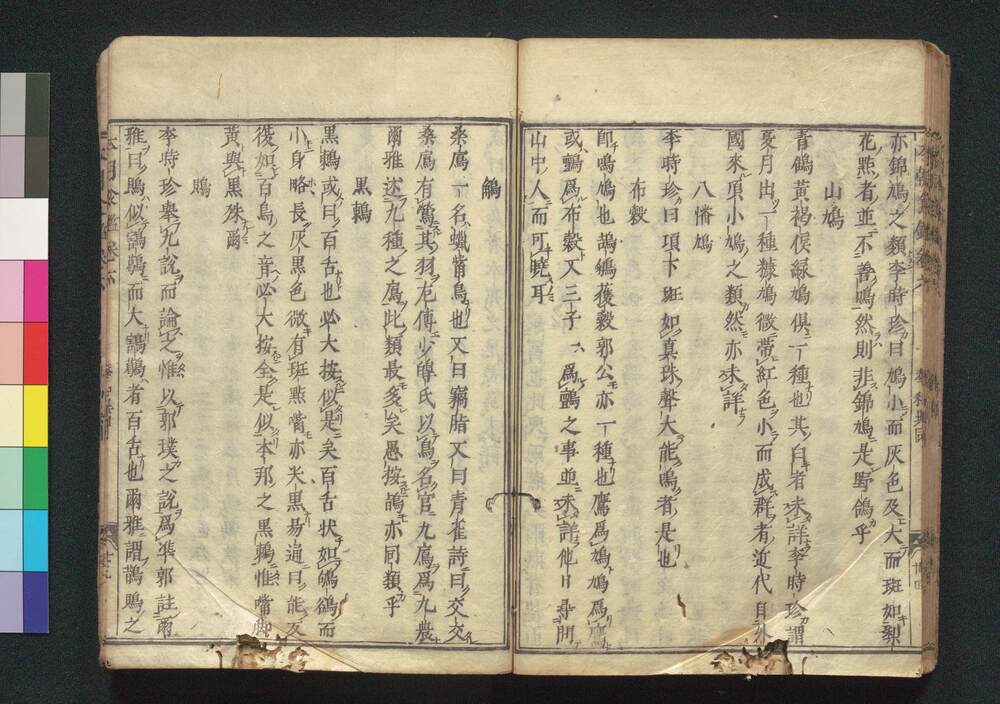 亦錦鳩之類李時珍曰鳩小而灰色及大而斑如梨
花㸃者並不善鳴然則非錦鳩是野鴿乎
山鳩
青鶴黄褐侯緑鳩俱一種也其白者未詳李時珍謂
夏月出一種糠鳩微帶紅色小而成群者近代自外
國來項小鳩之類然亦未詳
八幡鳩
李時珍曰項下斑如真珠聲大能鳴者是也
布穀
即鳴鳩也鴶鵴獲穀郭公亦一種也鷹爲鳩鳩爲鷹
或鸇爲布穀又三子爲鸇之事並未詳他日尋問
山中人而可曉耳
桑鳸一名蠟觜鳥也又曰竊脂又曰青雀詩曰交交
桑鳸有鶯其羽左傳少皞氏以鳥名官九鳸爲九農
爾雅述九種之鳸此類最多矣愚按鵠亦同類乎
黒鶇
黒鶇或曰百舌也必大按似是矣百舌状如鴝鵒而
小身略長灰黒色微有斑㸃嘴亦尖黒易通曰能反
復如百鳥之音必大按全是似本邦之黒鶇惟嘴脚
黄與黒殊爾
鵙
李時珍舉九説而論之惟以郭璞之説爲準郭註爾
雅曰鵙似鶷鶡而大鶷鶡者百舌也爾雅謂鵲鵙之